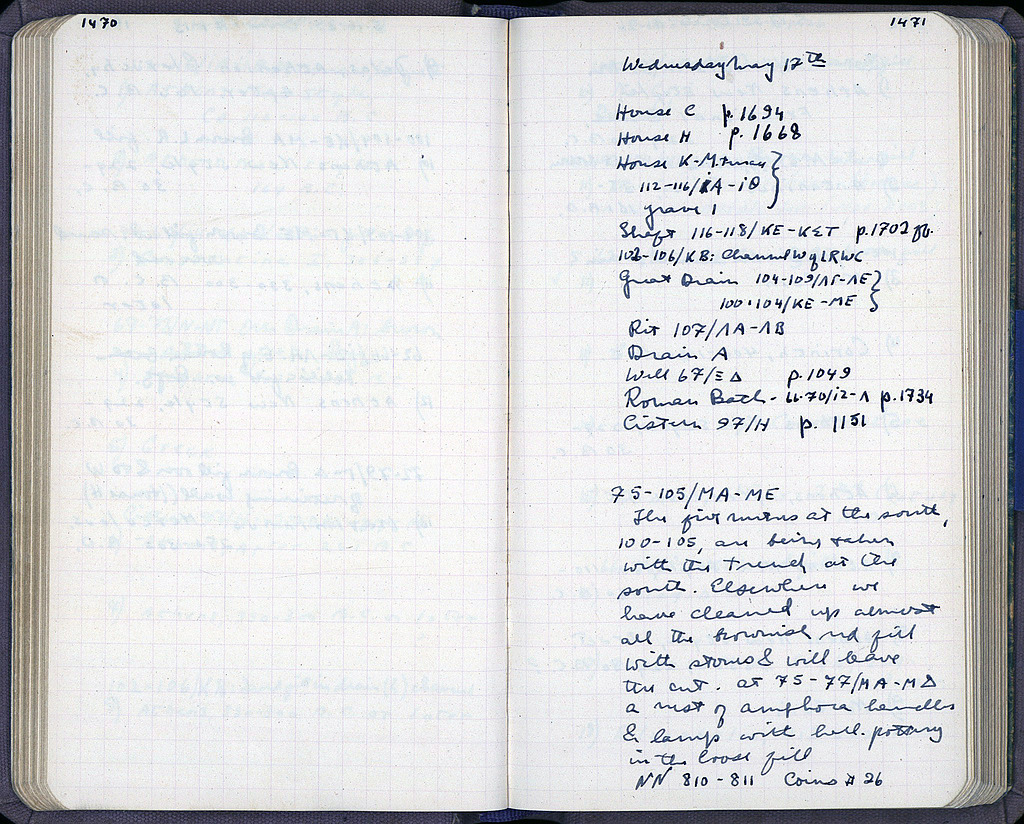 1470
1471
Wednesday May 17th
House C p. 1694
House H p. 1668
House K-
112-116/ΙΑ-ΙΘ
grave 1
Shaft 116-118/ΚΕ-ΚΣΤ p. 1702 ff.
102-106/ΚΒ: Channel W of LRWC
Great Drain 104-109/ΛΓ-ΛΕ
100-104/ΚΕ-ΜΕ
Pit 107/ΛΑ-ΛΒ
Drain A
Well 67/ΞΔ p. 1049
Roman Bath - 66-70/ΙΖ-Λ p. 1734
Cistern 97/Η p. 1151
75-105/ΜΑ-ΜΕ
The five meters at the south,
100-105, are being taken
with the trench at the
south. Elsewhere we
have cleaned up almost
all the brownish red fill
with stones & will leave
the cut. at 75-77/ΜΑ-ΜΔ
a nest of amphora handles
& lamps with hell. pottery
in the loose fill
NN 810-811 Coins # 26